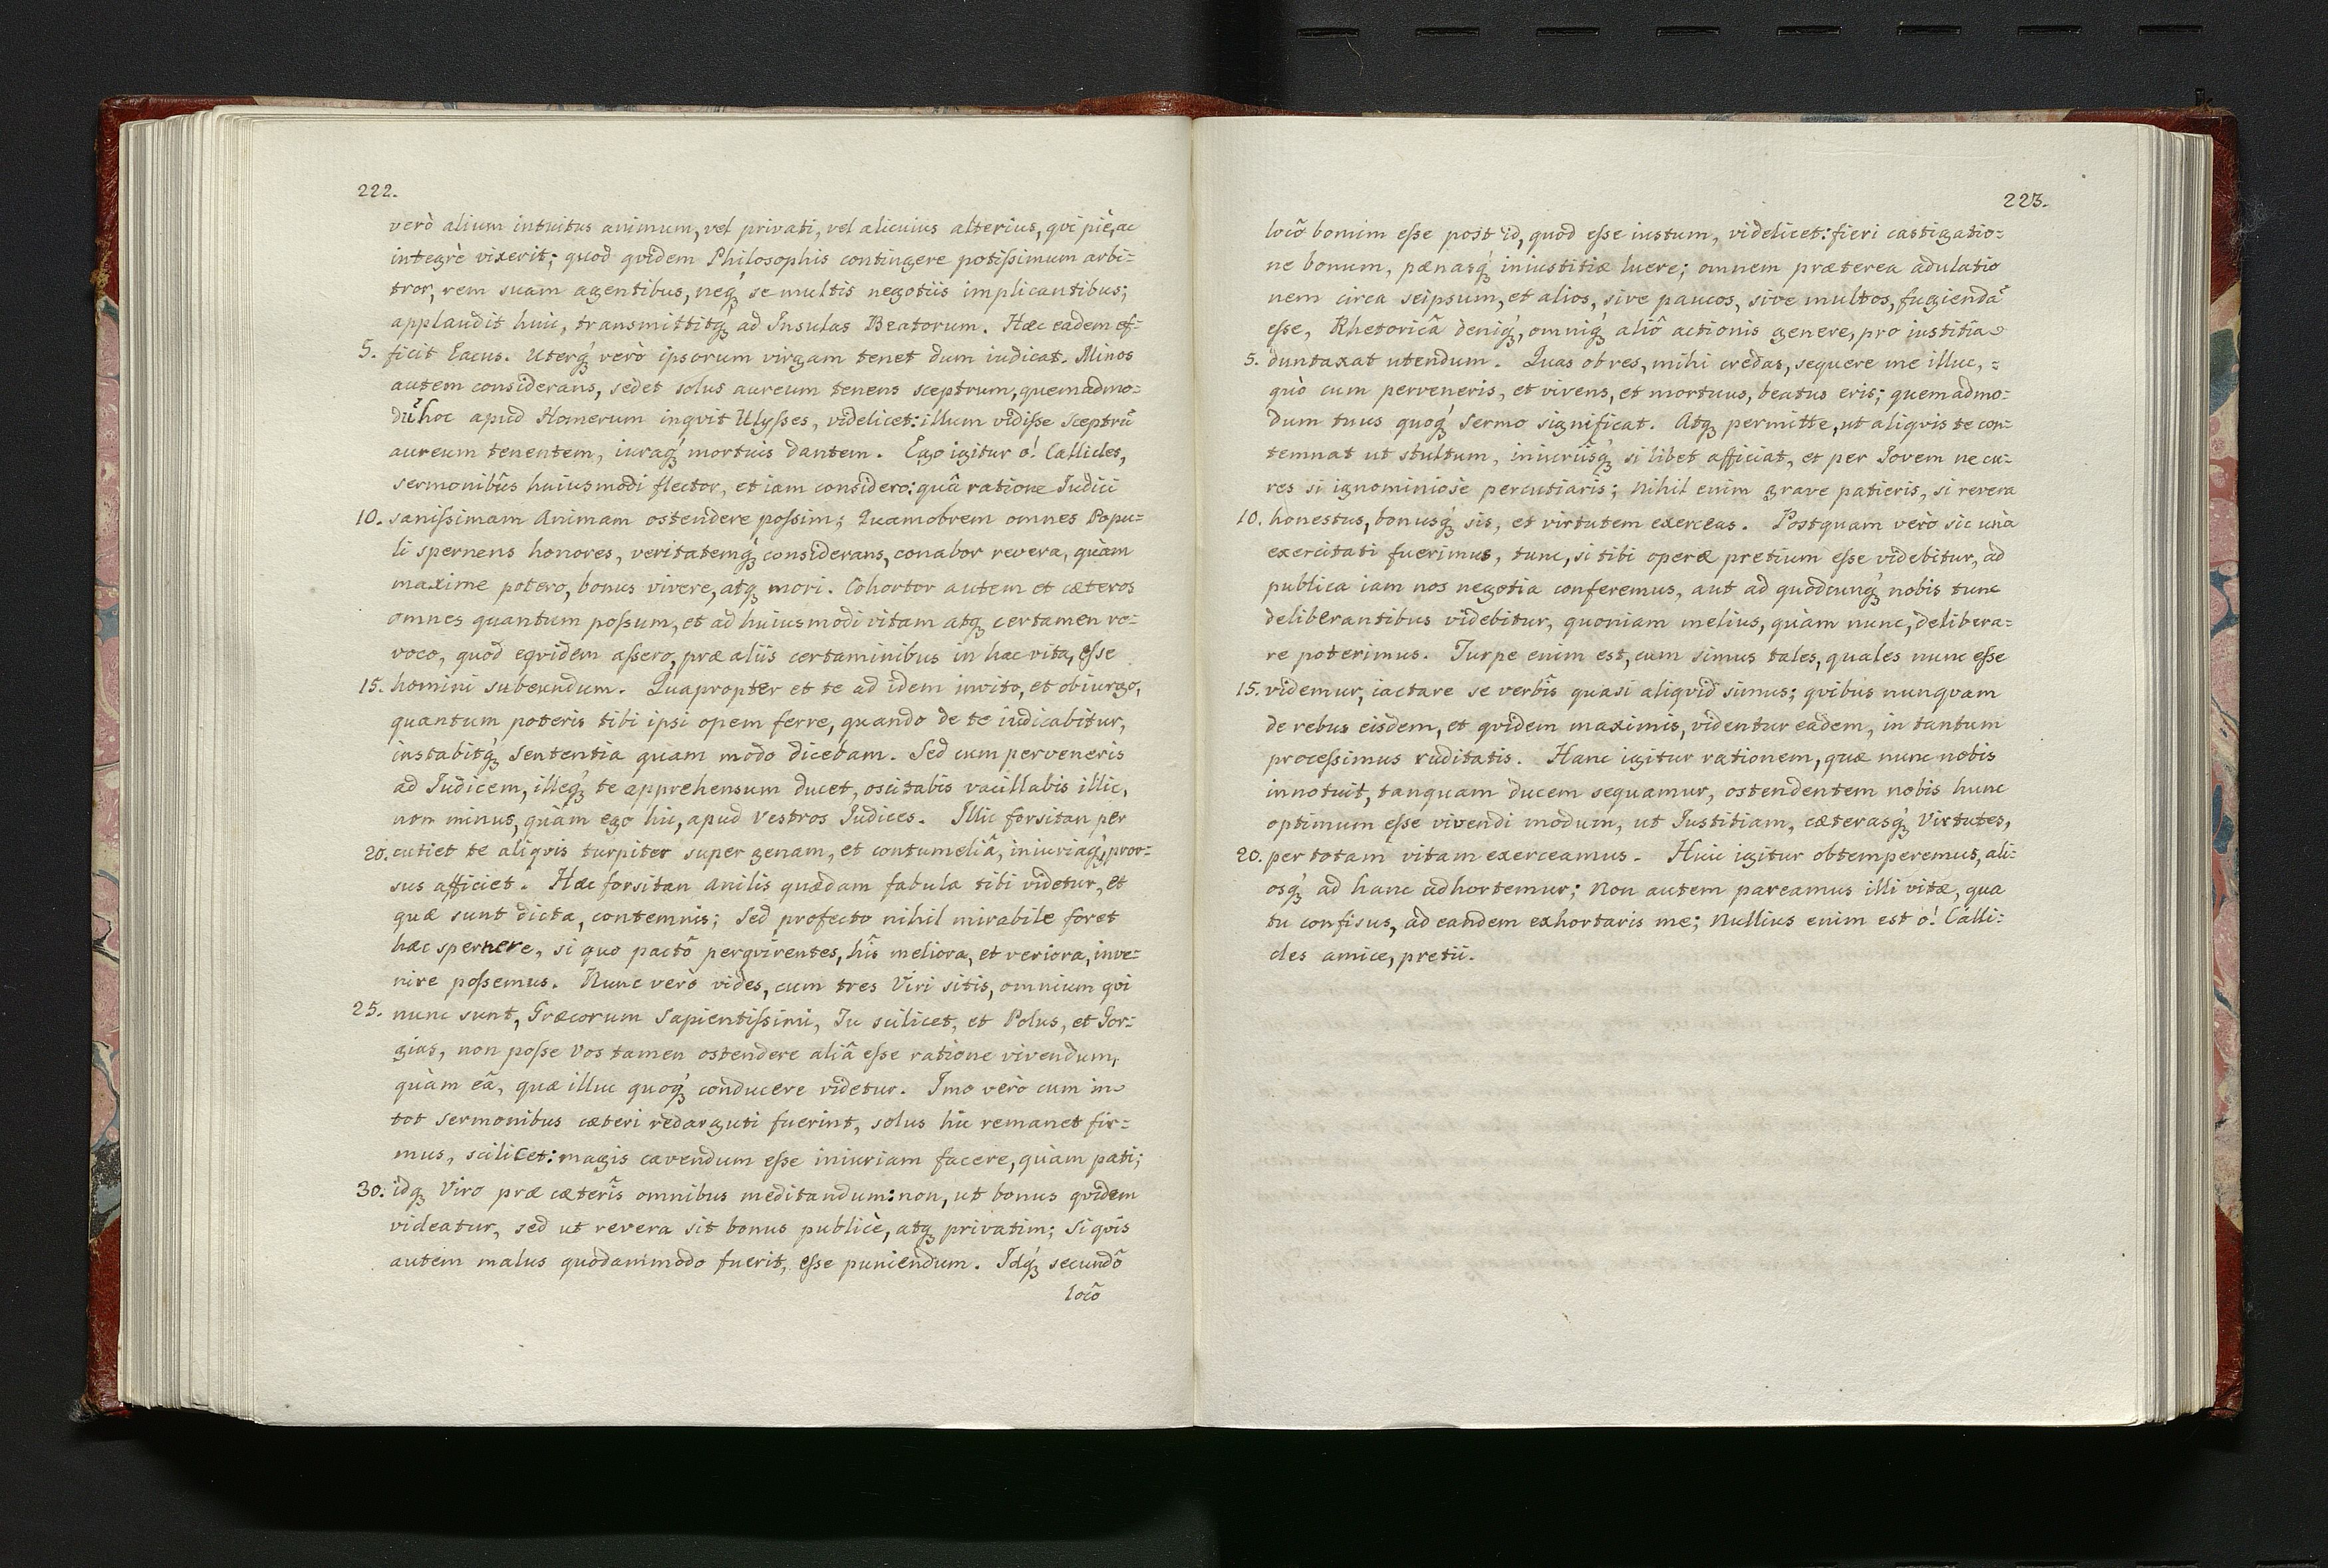 222.
verò alium intuitus animum, vel privati, vel alicuius alterius, qvi piè, ac
integrè vixerit; quod qvidem Philosophis contingere potißimum arbi=
tror, rem suam agentibus, neq́ꝫ se multis negotiis implicantibus;
applaudit huic, transmittitqꝫ ad Insulas Beatorum. Hæc eadem ef=
5. ficit Eacus. Uterq́ꝫ verò ipsorum virgam tenet dum iudicat. Minos
autem considerans, sedet solus aureum tenens sceptrum, quemadmo=
dũ hoc apud Homerum inqvit Ulyßes, videlicet: illum vidiße Sceptrũ
aureum tenentem, iuraq́ꝫ mortuis dantem. Ego igitur o! Callicles,
sermonibûs huiusmodi flector, et iam considero: quâ ratione Iudici
10. sanißimam Animam ostendere poßim; Quamobrem omnes Popu=
li spernens honores, veritatemq́ꝫ considerans, conabor revera, quàm
maxime potero, bonus vivere, atqꝫ mori. Cohortor autem et cæteros
omnes quantum poßum, et ad huiusmodi vitam atqꝫ certamen vo=
voco, quod eqvidem aßero, præ aliis certaminibus in hac vita, eße
15. homini subeundum. Quapropter et te ad idem invito, et obiurgo,
quantum poteris tibi ipsi opem ferre, quando de te iudicabitur,
instabitq́ꝫ Sententia quam modo dicebam. Sed cum perveneris
ad Iudicem, illeq́ꝫ te apprehensum ducet, oscitabis vacillabis illic,
non minus, quàm ego hic, apud Vestros Iudices. Illic forsitan per
20. cutiet te aliqvis turpiter super genam, et contumeliâ, iniuriaq́ꝫ, pror=
sus afficiet. Hæc forsitan Anilis quædam fabula tibi videtur, et
quæ sunt dicta, contemnis; Sed profecto nihil mirabile foret
hæc spernere, si quo pactô perqvirentes, hîs meliora, et veriora, inve=
nire poßemus. Nunc verò vides, cum tres Viri sitis, omnium qvi
25. nunc sunt, Græcorum Sapientißimi, Tu scilicet, et Polus, et Gor=
gias, non poße Vos tamen ostendere aliâ eße ratione vivendum,
quàm eâ, quæ illuc quoq́ꝫ conducere videtur. Imo verò cum in
tot sermonibus cæteri redarguti fuerint, solus hic remanet fir=
mus, scilicet: magis cavendum eße iniuriam facere, quàm pati;
30. idqꝫ Viro præ cæterîs omnibus meditandum: non, ut bonus qvidem
videatur, sed ut revera sit bonus publicè, atqꝫ privatim; Si qvis
autem malus quodammodo fuerit, eße puniendum. Idq́ꝫ secundô
locô
223.
locô bonum eße post id, quod eße iustum, videlicet: fieri castigatio=
ne bonum, pænasq́ꝫ iniustitiæ luere; omnem præterea adulatio
nem circa seipsum, et alios, sive paucos, sive multos, fugiendã
eße, Rhetoricâ deniq́ꝫ, omniq́ꝫ aliô actionis genere, pro iustitia
5. duntaxat utendum. Quas ob res, mihi credas, sequere me illuc, =
quò cum perveneris, et vivens, et mortuus, beatus eris; quemadmo=
dum tuus quoq́ꝫ Sermo significat. Atqꝫ permitte, ut aliqvis te con=
temnat ut stultum, iniuriisq́ꝫ si libet afficiat, et per Iovem ne cu=
res si ignominiosè percutiaris; Nihil enim grave patieris, si revera
10. honestus, bonusq́ꝫ sis, et virtutem exerceas. Postquam verò sic unà
exercitati fuerimus, tunc, si tibi operæ pretium eße videbitur, ad
publica iam nos negotia conferemus, aut ad quodcunq́ꝫ nobis tunc
deliberantibus videbitur, quoniam melius, quàm nunc, delibera=
re poterimus. Turpe enim est, cum simus tales, quales nunc eße
15. videmur, iactare se verbîs quasi aliqvid simus; qvibus nunqvam
de rebus eisdem, et qvidem maximis, videntur eadem, in tantum
proceßimus ruditatis. Hanc igitur rationem, quæ nunc nobis
innotuit, tanquam ducem sequamur, ostendentem nobis hunc
optimum eße vivendi modum, ut Iustitiam, cæterasq́ꝫ Virtutes,
20. per totam vitam exerceamus. Huic igitur obtemperemus, ali=
osq́ꝫ ad hanc adhortemur; Non autem pareamus illi vitæ, qua
tu confisus, ad eandem exhortaris me; Nullius enim est o! Calli=
cles amice, pretii.